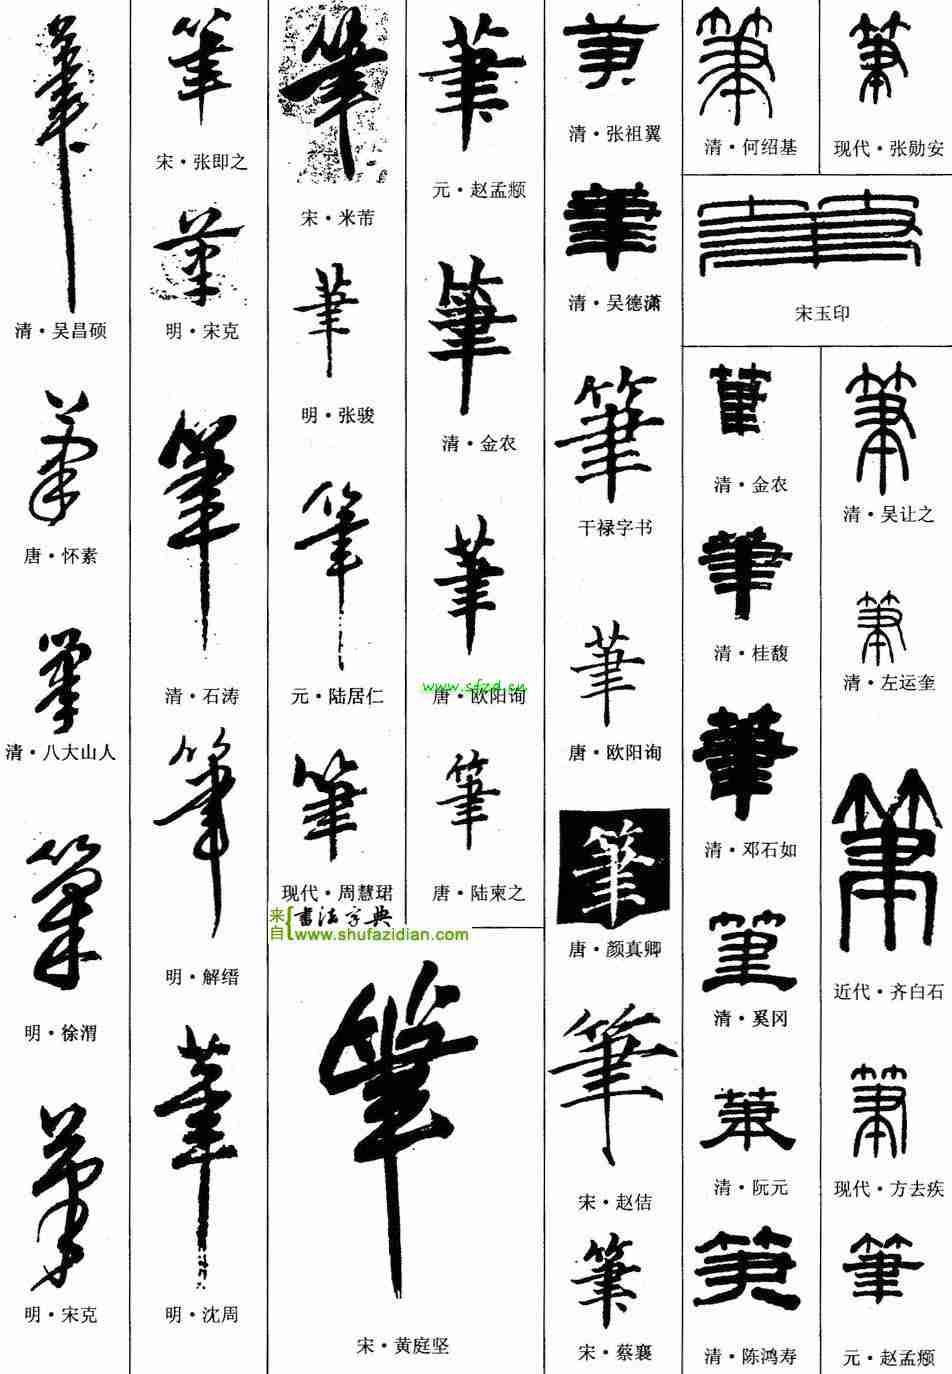 筆
清·吴昌硕
筆
唐·怀素
筆
清·八大山人
筆
明·徐渭
筆
明·宋克
筆
宋·张即之
筆
明·宋克
筆
清·石涛
筆
明·解缙
筆
明·沈周
筆
宋·米芾
筆
明·张骏
筆
元·陆居仁
筆
现代·周慧珺
来自 書法字典
www.shufazidian.com
筆
宋·黄庭坚
筆
元·赵孟頫
筆
清·金农
筆
唐·欧阳询
www.sfzd.cn
筆
唐·陆柬之
筆
清·张祖翼
筆
清·吴德潇
筆
干禄字书
筆
唐·欧阳询
筆
唐·颜真卿
筆
宋·赵佶
筆
宋·蔡襄
筆
清·何绍基
筆
现代·张勋安
筆
宋玉印
筆
清·金农
筆
清·桂馥
筆
清·邓石如
筆
清·奚冈
筆
清·阮元
筆
清·陈鸿寿
筆
清·吴让之
筆
清·左运奎
筆
近代·齐白石
筆
现代·方去疾
筆
元·赵孟頫